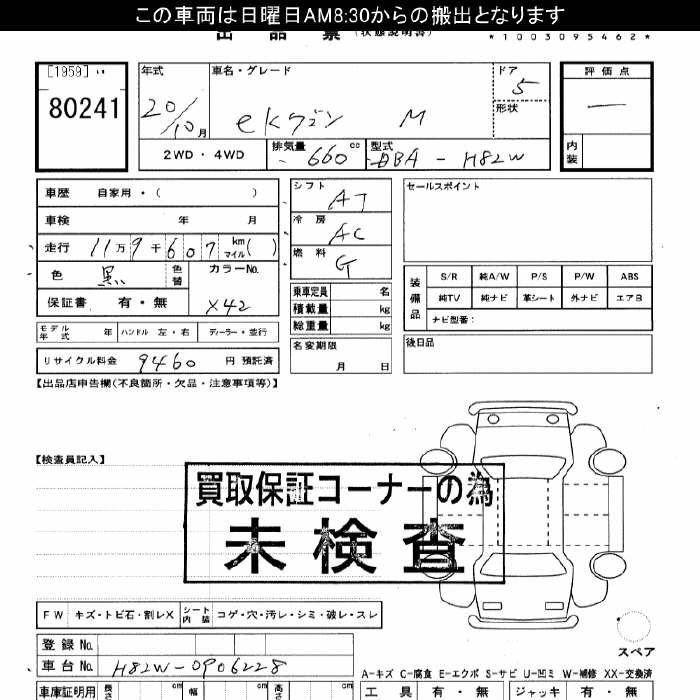 この車両は日曜日AM8:30からの搬出となります
出品票 (状態説明書) *1003095462*
[1959] い
80241
年式 20/10月
車名・グレード ekワゴン M
ドア 5
形状
評価点 —
内装
2WD・4WD
排気量 660 cc
型式 DBA-H82W
車歴 自家用・( )
車検 年 月
走行 11万9千607 km マイル( )
色 黒 色替 カラーNo. X42
保証書 有・無
モデル年式 年 ハンドル 左・右 ディーラー・並行
リサイクル料金 9460 円 預託済
シフト AT
冷房 AC
燃料 G
乗車定員 名
積載量 kg
総重量 kg
名変期限
月 日
セールスポイント
装備品
S/R 純A/W P/S P/W ABS
純TV 純ナビ 革シート 外ナビ エアB
ナビ型番:
後日品
【出品店申告欄(不良箇所・欠品・注意事項等)】
【検査員記入】
買取保証コーナーの為
未検査
FW キズ・トビ石・割レX シート内装 コゲ・穴・汚レ・シミ・破レ・スレ
登録No.
車台No. H82W-0906228
スペア
A-キズ C-腐食 E-エクボ S-サビ U-凹ミ W-補修 XX-交換済
車庫証明用 長さ cm 幅 cm 高さ cm
工具 有・無 ジャッキ 有・無